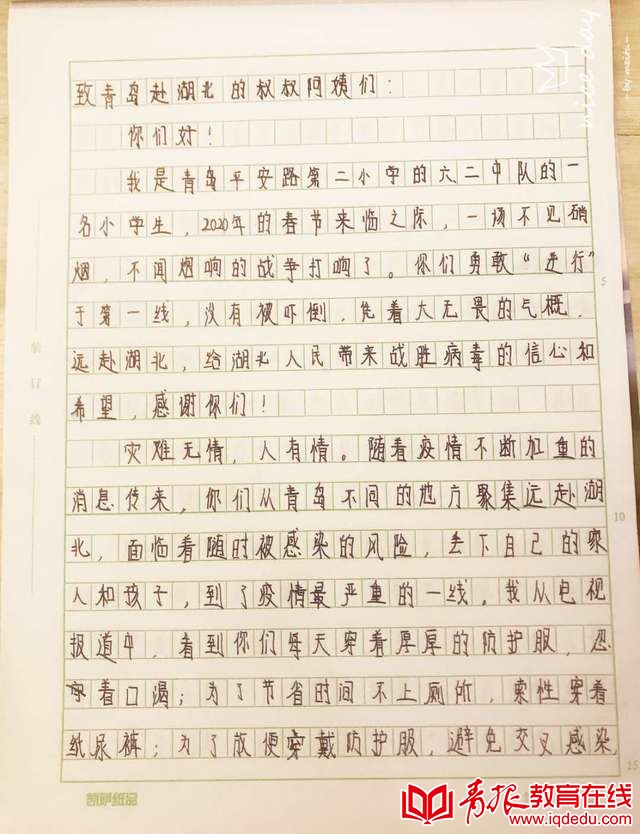 致青岛赴湖北的叔叔阿姨们:
你们好!
我是青岛平安路第二小学的六二中队的一
名小学生,2020年的春节来临之际,一场不见硝
烟,不闻烟响的战争打响了。你们勇敢“逆行”
于第一线,没有被吓倒,凭着大无畏的气概,
远赴湖北,给湖北人民带来战胜病毒的信心和
希望,感谢你们!
灾难无情,人有情。随着疫情不断加重的
消息传来,你们从青岛不同的地方聚集远赴湖
北,面临着随时被感染的风险,丢下自己的家
人和孩子,到了疫情最严重的一线。我从电视
报道中,看到你们每天穿着厚厚的防护服,忍
着口渴;为了节省时间不上厕所,索性穿着
纸尿裤;为了放便穿戴防护服,避免交叉感染,
5
10
15
装订线
凯萨纸品
nice day
by meitu
青报教育在线
www.iqdedu.com